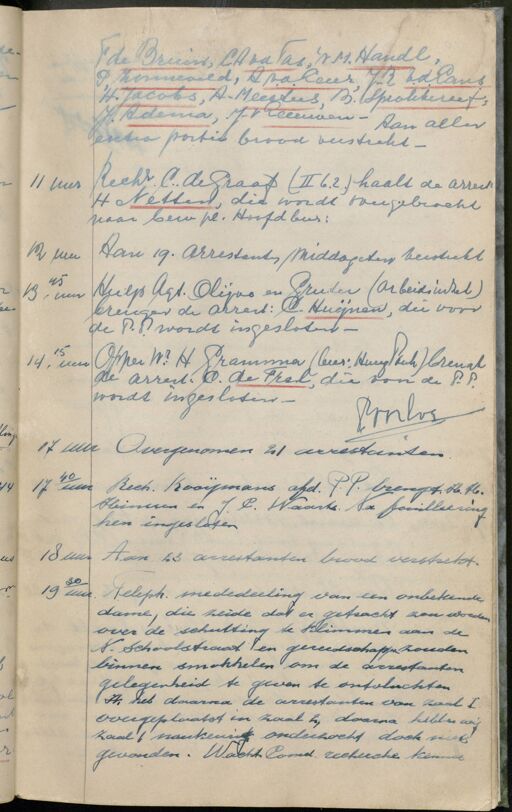 F de Bruin, C A v d Tas, v. M. Handl,
P. Zonneveld, A v d Keur, J. R. v d Pans
H. Jacobs, A. Meertens, B.
H. Adema, J. v Leeuwen - Aan allen
extra portie brood verstrekt -
11 uur Rech. C. de Graaf (II b. 2.) haalt de arrest.
H Netten, die wordt overgebracht
naar bew. pl. Hoofdbur:
12 uur Aan 19. arrestanten, middageten verstrekt
13.45 uur Hulp Agt. Olijve en Gruter (Arbeidsinzet)
brengen de arrest: C. Huijnan, die voor
de P.P. wordt ingesloten -
14.15 uur Opper W. H Gramma (bur: Haag) brengt
de arrest. C. de Fret, die voor de P.P.
wordt ingesloten -
17 uur Overgenomen 21 arrestanten.
17 40 uur Rech. Kooijmans afd. P.P. brengt H. H.
Heimsen en J. C. Waarts. Na fouilleering
hen ingesloten
18 uur Aan 23 arrestanten brood verstrekt.
19 30 uur. Teleph. mededeeling van een onbekende
dame, die zeide dat er getracht zou worden
over de schutting te klimmen aan de
N. Schoolstraat en gereedschapp. zouden
binnen smokkelen om de arrestanten
gelegenheid te geven te ontvluchten
H. het daarna de arrestanten van zaal I
overgeplaatst in zaal 2, daarna hebben wij
zaal 1 naukeurig onderzocht doch niets
gevonden. Wacht Comd. recherche kennis